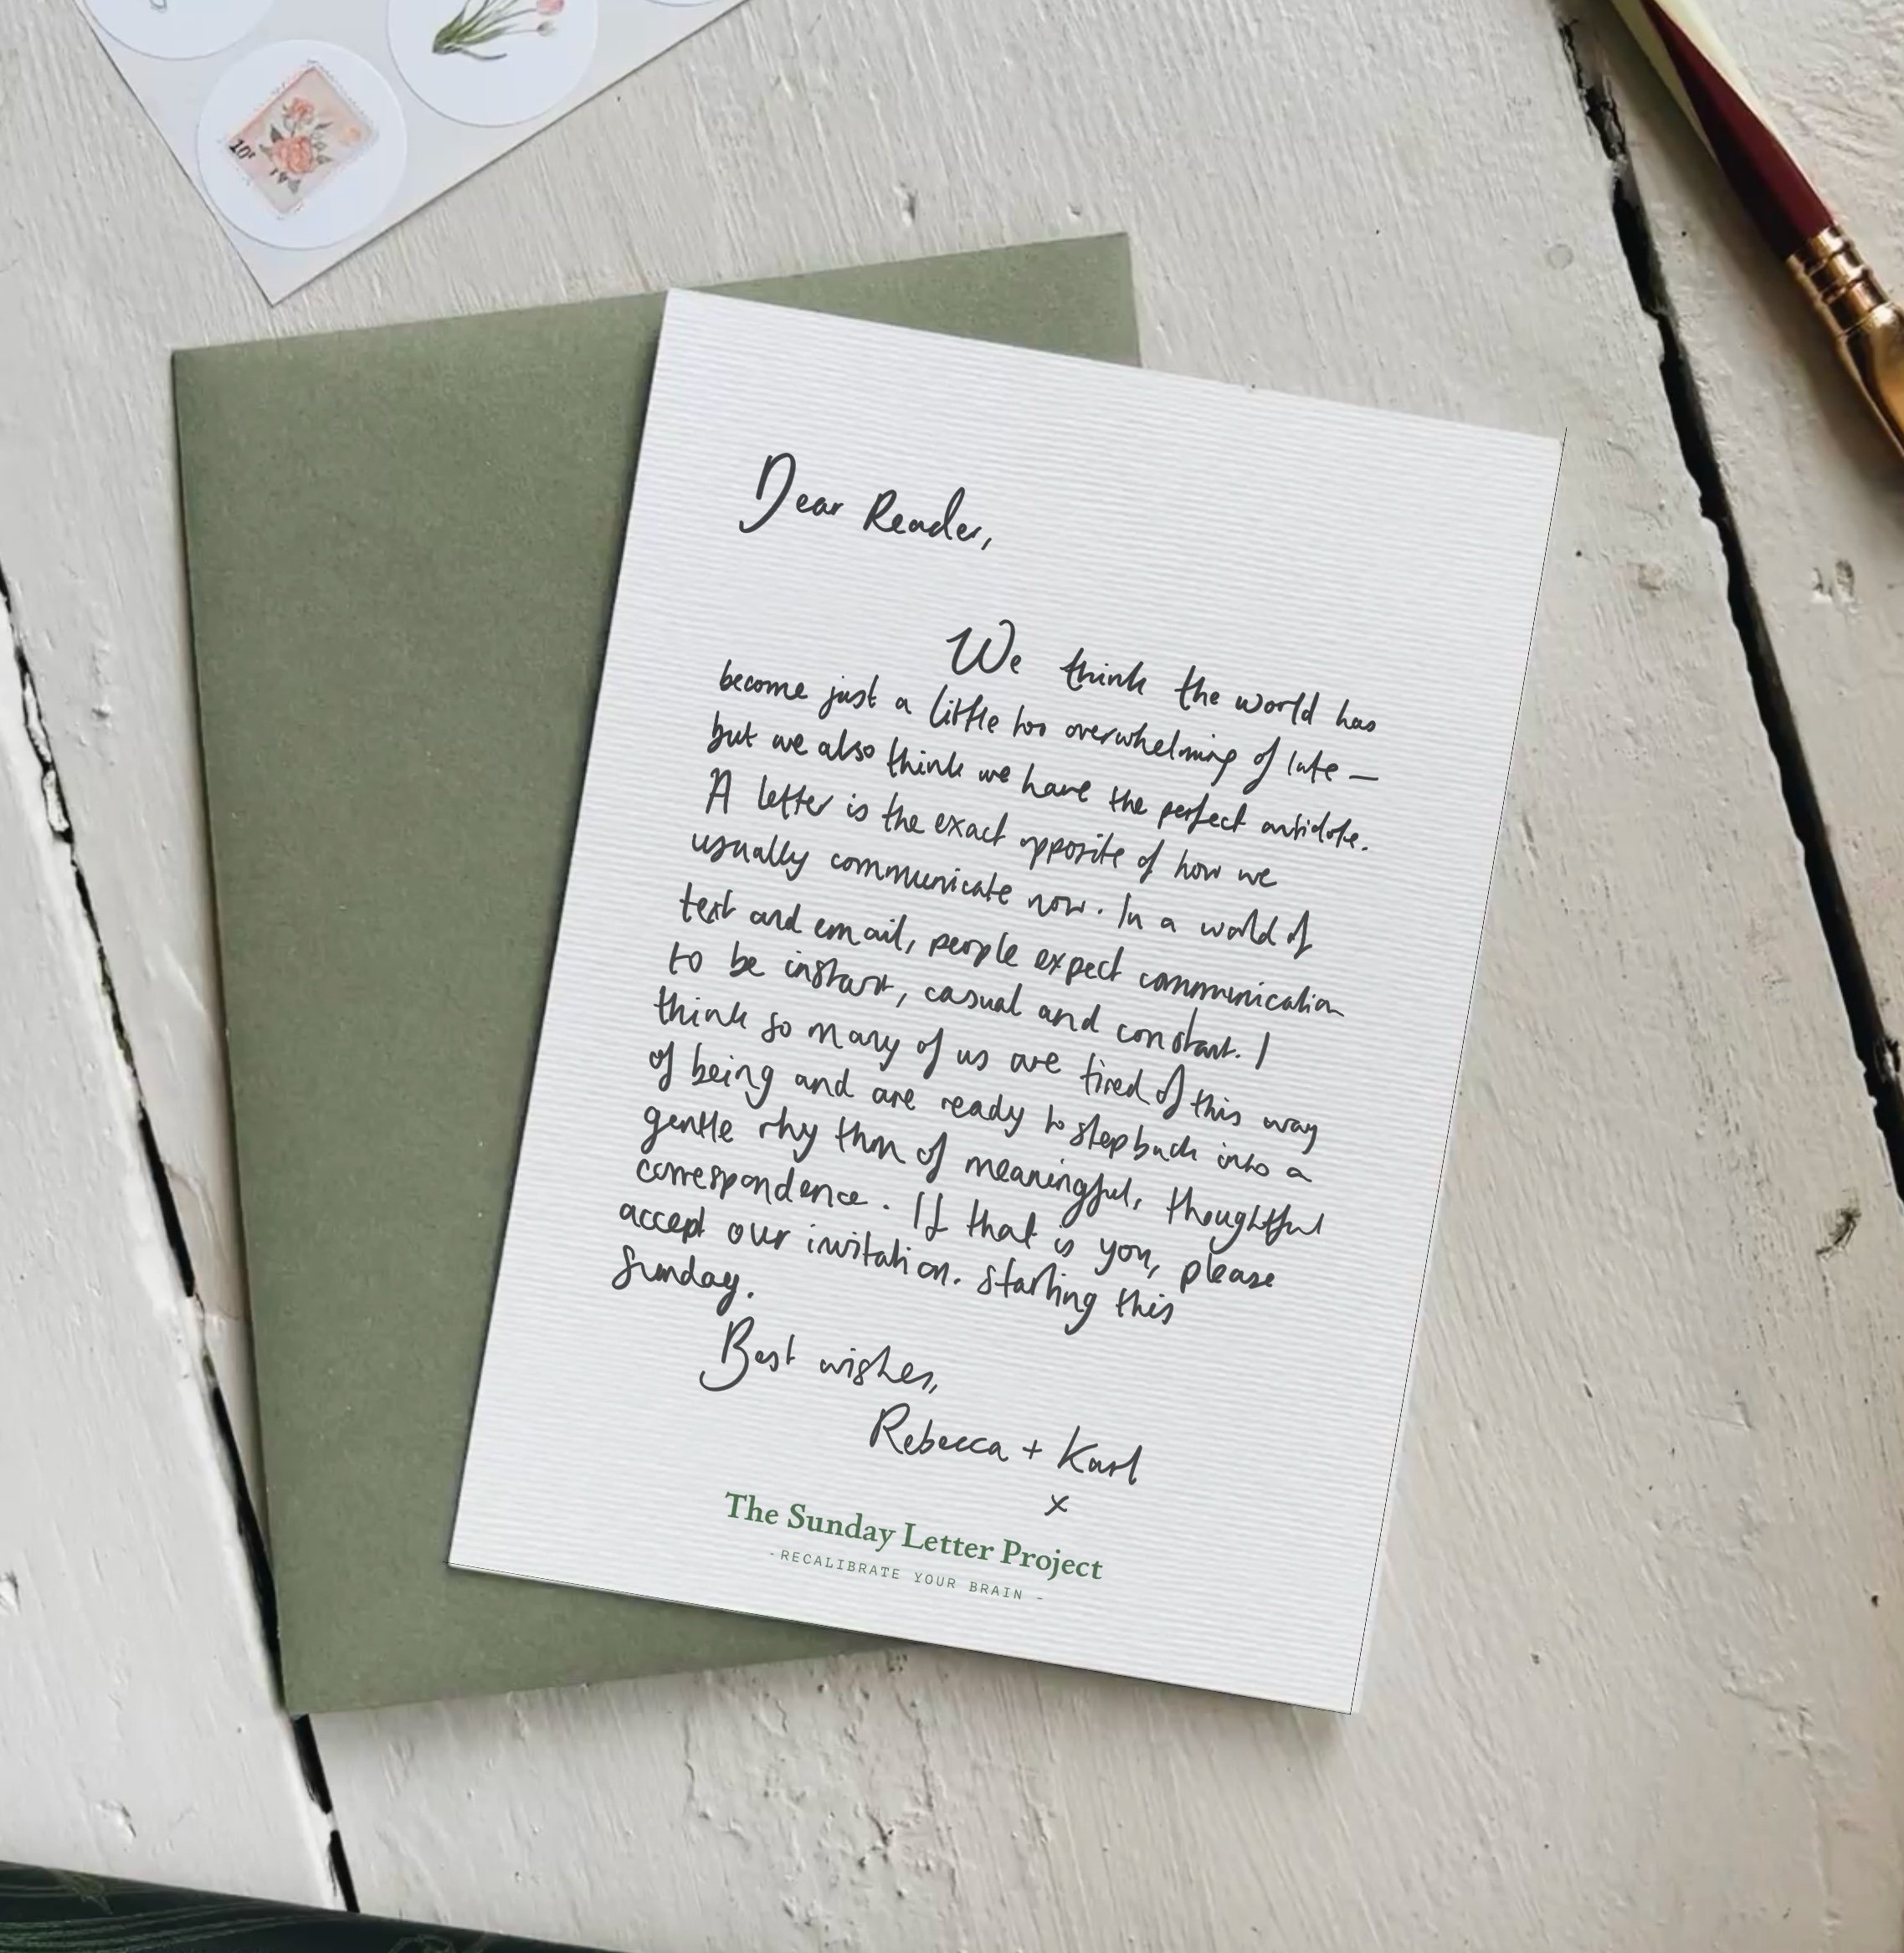 10¢
Dear Reader,
We think the world has
become just a little too overwhelming of late —
but we also think we have the perfect antidote.
A letter is the exact opposite of how we
usually communicate now. In a world of
text and email, people expect communication
to be instant, casual and constant. I
think so many of us are tired of this way
of being and are ready to step back into a
gentle rhythm of meaningful, thoughtful
correspondence. If that is you, please
accept our invitation. Starting this
Sunday.
Best wishes,
Rebecca + Karl
x
The Sunday Letter Project
- RECALIBRATE YOUR BRAIN -